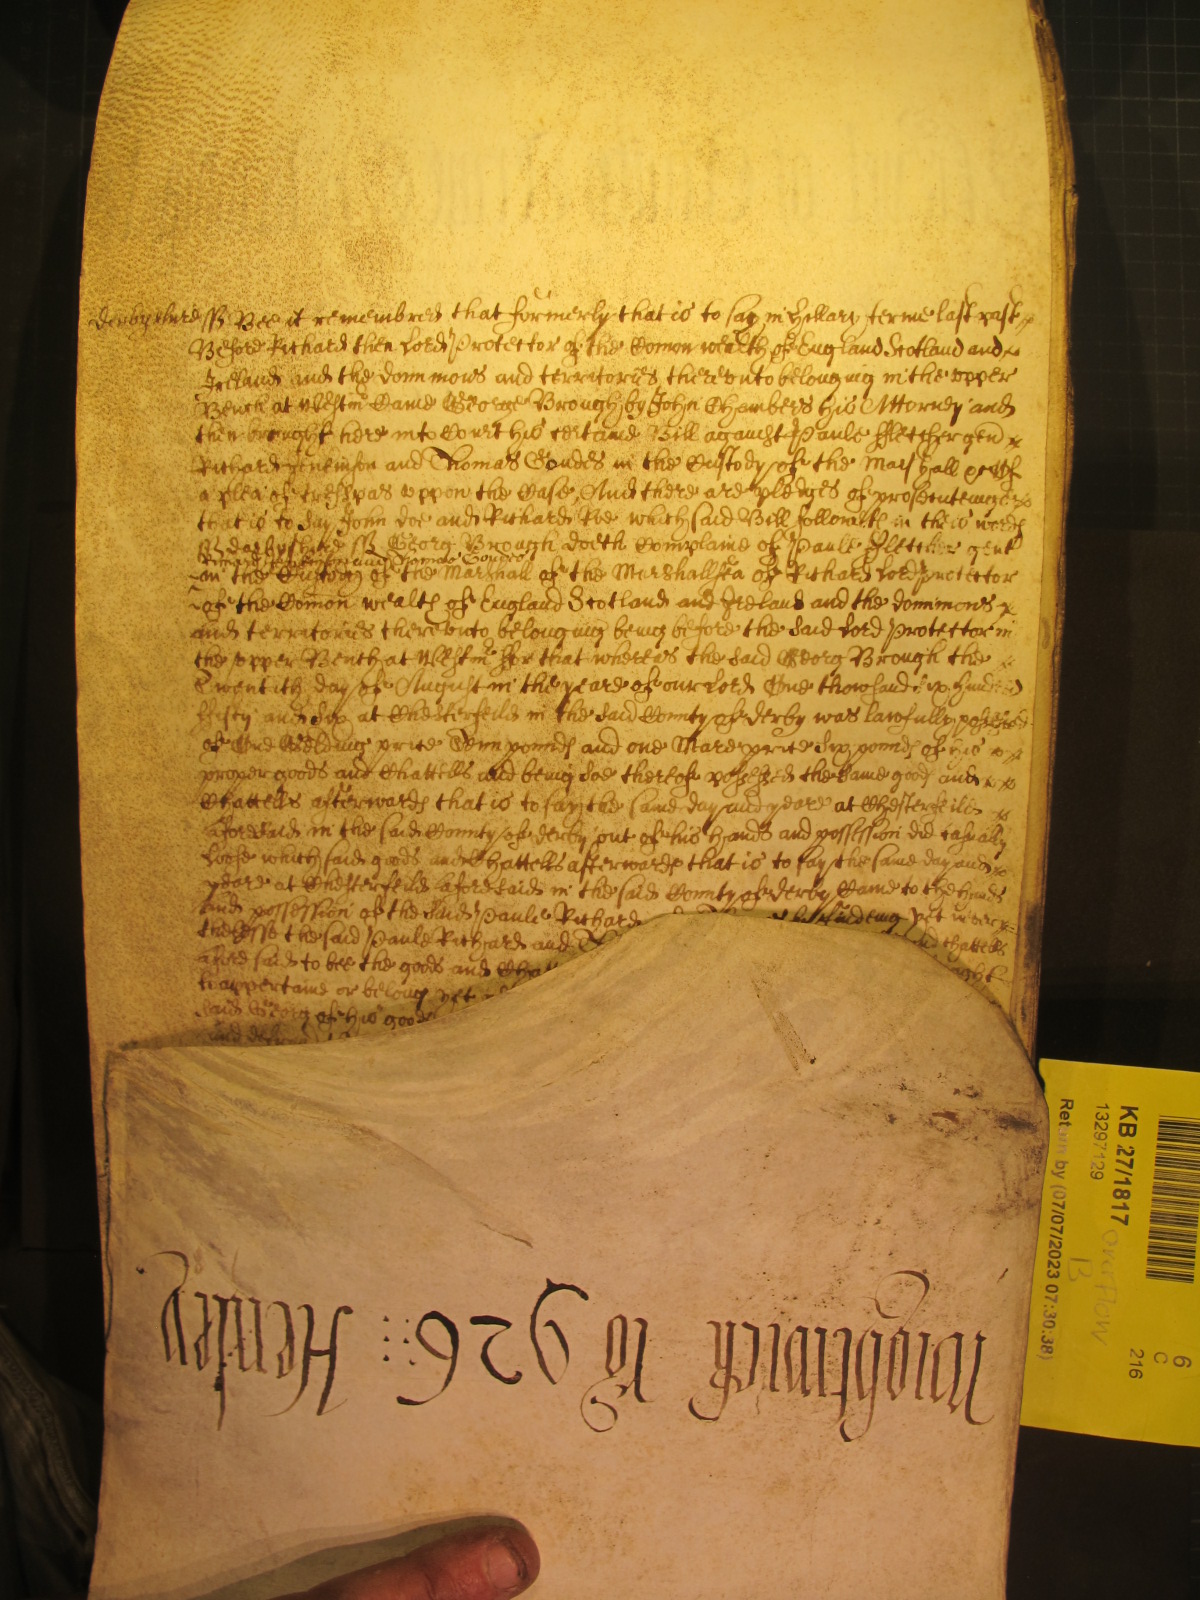 Derbyshire ss Bee it remembred that formerly that is to say in Hillary terme last past
Before Richard then Lord Protector of the Comon wealth of England Scotland and
Ireland and the dominions and territories thereunto belonging in the upper
Bench at Westmr Came George Brough by John Chambers his Attorney and
then brought here into Court his certaine Bill against Paule Fletcher gend
Richard and Thomas in the Custody of the Marshall
a plea of tresspas uppon the Case, And there are pledges of prosecuteing
that is to say John doe and Richard Roe which said Bill followeth in theis words
ss derbyshire ss Georg Brough doeth Complaine of Paule Fletcher gent
Richard and Thomas
in the Custody of the Marshall of the Marshallsea of Richard Lord protector
of the Comon wealth of England Scotland and Ireland and the dominions
and territories thereunto belonging being before the said Lord Protector in
the upper Bench at Westmr For that whereas the said Georg Brough the
Twentith day of August in the yeare of our Lord One thowsand six hundred
Fifty and Six at Chesterfeild in the said County of derby was lawfully possessed
of One Gelding price Tenn pounds and one Mare price Six pounds of his
proper goods and Chattells and being soe thereof possessed the same goods and
Chattells afterwards that is to say the same day and yeare at Chesterfeild
aforesaid in the said County of derby out of his hands and possession did casually
loose which said goods and Chattells afterwards that is to say the same day and
yeare at Chesterfeild aforesaid in the said County of derby Came to the hands
and possession of the said Paule Richard by findeing yet
the said Paule Richard and chattells
aforesaid to bee the goods and
to appertaine or belong yet
said Georg of his goods
Wightwick Ro 926 :: Henley
KB 27/1817
13297129
Return by (07/07/2023 07:30:38)
overflow
B
6
C
216